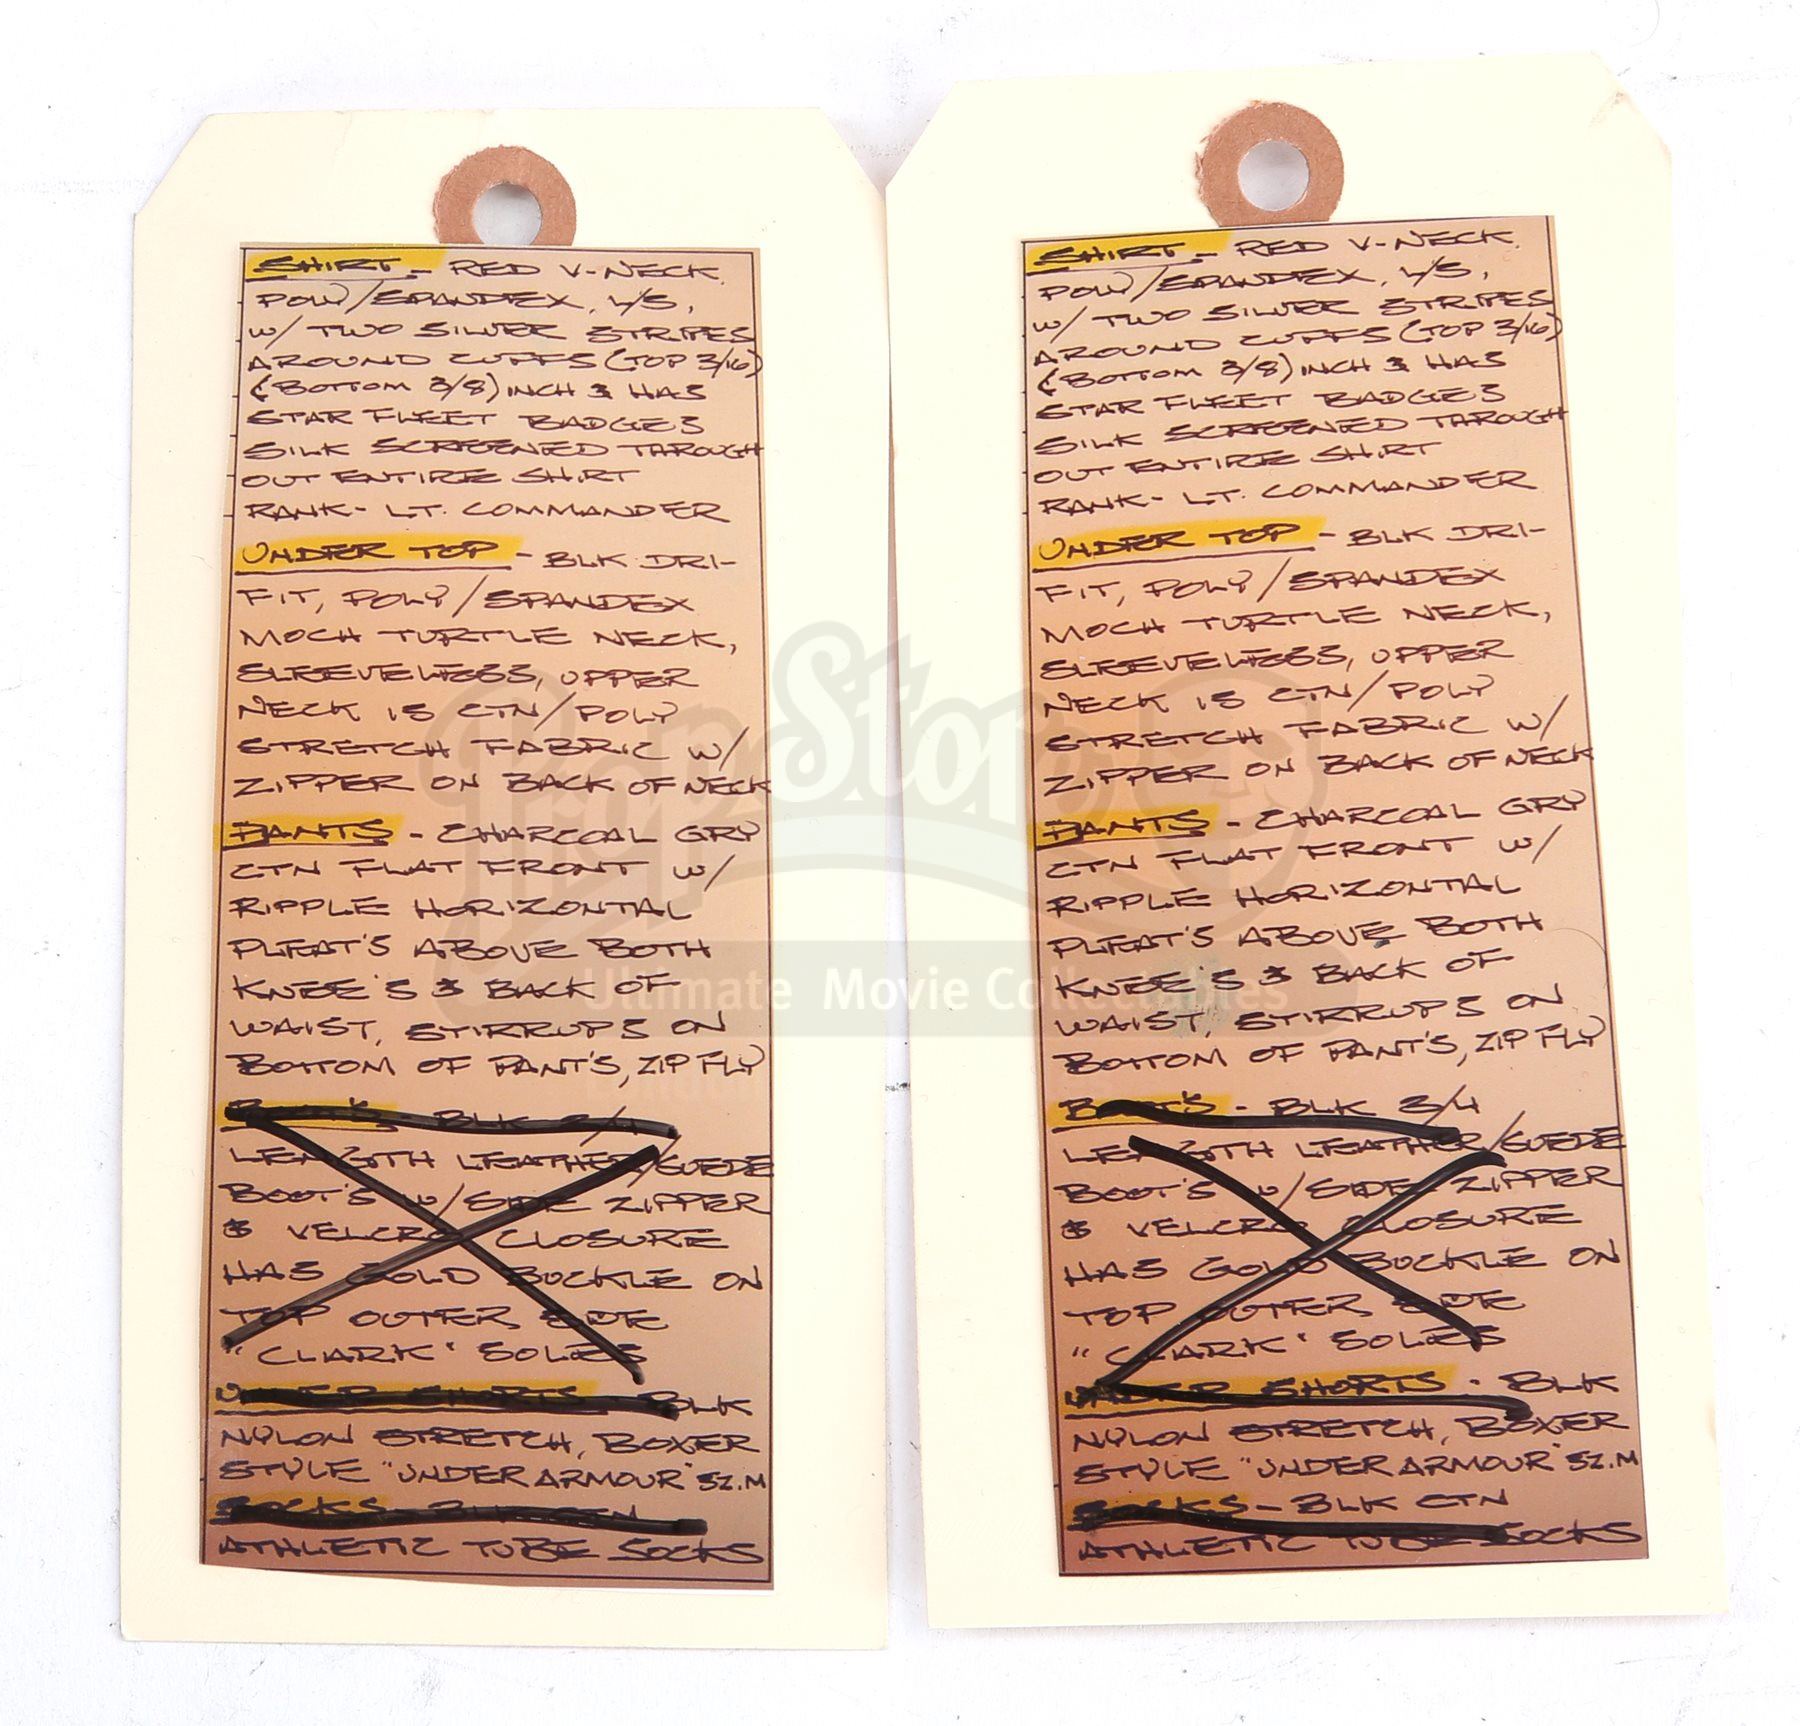 SHIRT - RED V-NECK,
POLY/SPANDEX, L/S,
W/ TWO SILVER STRIPES
AROUND CUFFS (TOP 3/16)
(BOTTOM 3/8) INCH & HAS
STAR FLEET BADGES
SILK SCREENED THROUGH
OUT ENTIRE SHIRT
RANK- LT. COMMANDER
UNDER TOP - BLK DRI-
FIT, POLY/SPANDEX
MOCH TURTLE NECK,
SLEEVELESS, UPPER
NECK IS CTN/POLY
STRETCH FABRIC W/
ZIPPER ON BACK OF NECK
PANTS - CHARCOAL GRY
CTN FLAT FRONT W/
RIPPLE HORIZONTAL
PLEAT'S ABOVE BOTH
KNEE'S & BACK OF
WAIST, STIRRUPS ON
BOTTOM OF PANT'S, ZIP FLY
BOOT'S - BLK 3/4
LENGTH LEATHER/SUEDE
BOOT'S W/SIDE ZIPPER
& VELCRO CLOSURE
HAS GOLD BUCKLE ON
TOP OUTER SIDE
"CLARK" SOLES
UNDER SHORTS - BLK
NYLON STRETCH, BOXER
STYLE "UNDER ARMOUR" SZ.M
SOCKS - BLK CTN
ATHLETIC TUBE SOCKS
SHIRT - RED V-NECK,
POLY/SPANDEX, L/S,
W/ TWO SILVER STRIPES
AROUND CUFFS (TOP 3/16)
(BOTTOM 3/8) INCH & HAS
STAR FLEET BADGES
SILK SCREENED THROUGH
OUT ENTIRE SHIRT
RANK- LT. COMMANDER
UNDER TOP - BLK DRI-
FIT, POLY/SPANDEX
MOCH TURTLE NECK,
SLEEVELESS, UPPER
NECK IS CTN/POLY
STRETCH FABRIC W/
ZIPPER ON BACK OF NECK
PANTS - CHARCOAL GRY
CTN FLAT FRONT W/
RIPPLE HORIZONTAL
PLEAT'S ABOVE BOTH
KNEE'S & BACK OF
WAIST, STIRRUPS ON
BOTTOM OF PANT'S, ZIP FLY
BOOT'S - BLK 3/4
LENGTH LEATHER/SUEDE
BOOT'S W/SIDE ZIPPER
& VELCRO CLOSURE
HAS GOLD BUCKLE ON
TOP OUTER SIDE
"CLARK" SOLES
UNDER SHORTS - BLK
NYLON STRETCH, BOXER
STYLE "UNDER ARMOUR" SZ.M
SOCKS - BLK CTN
ATHLETIC TUBE SOCKS
PropStore
Ultimate Movie Collectables